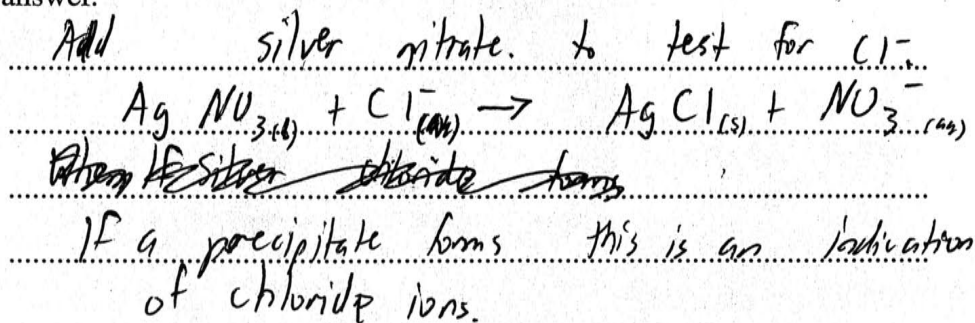 answer.
Add silver nitrate. to test for Cl⁻.
Ag NO₃(l) + Cl⁻(aq) → Ag Cl(s) + NO₃⁻(aq)
If silver chloride forms
If a precipitate forms this is an indication
of chloride ions.